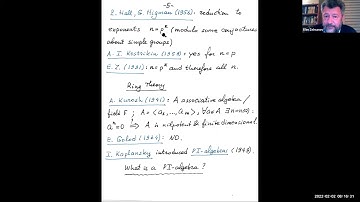 -5-
P. Hall, G. Higman (1956): reduction to
exponents n=p^k (modulo some conjectures
about simple groups)
A. I. Kostrikin (1958): yes for n=p
E. Z. (1991): n=p^k and therefore all n.
Ring Theory
A. Kurosh (1941): A associative algebra/
field F; A=<a1,...,am>, ∀a∈A ∃n=n(a):
a^n=0 ⇒ A is nilpotent & finite dimensional.
E. Golod (1964): NO.
I. Kaplansky introduced PI-algebras (1948).
What is a PI-algebra?
Efim Zelmanov
2022-02-02 08:16:31